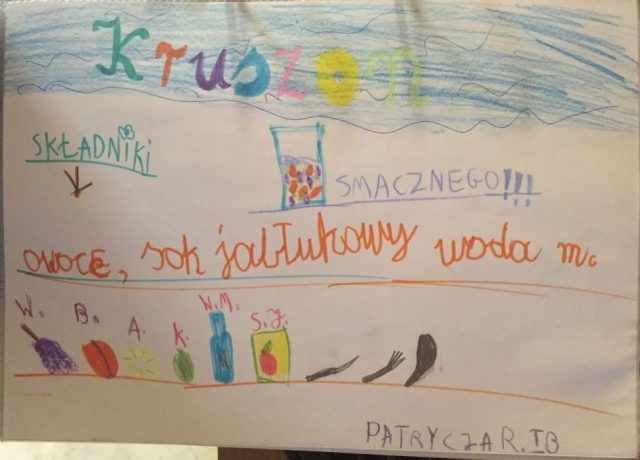 Kruszon
SKŁADNIKI
SMACZNEGO!!!
owoce, sok jabłukowy woda m.
W. B. A. K. W.M. S.J.
PATRYCZAR.IB